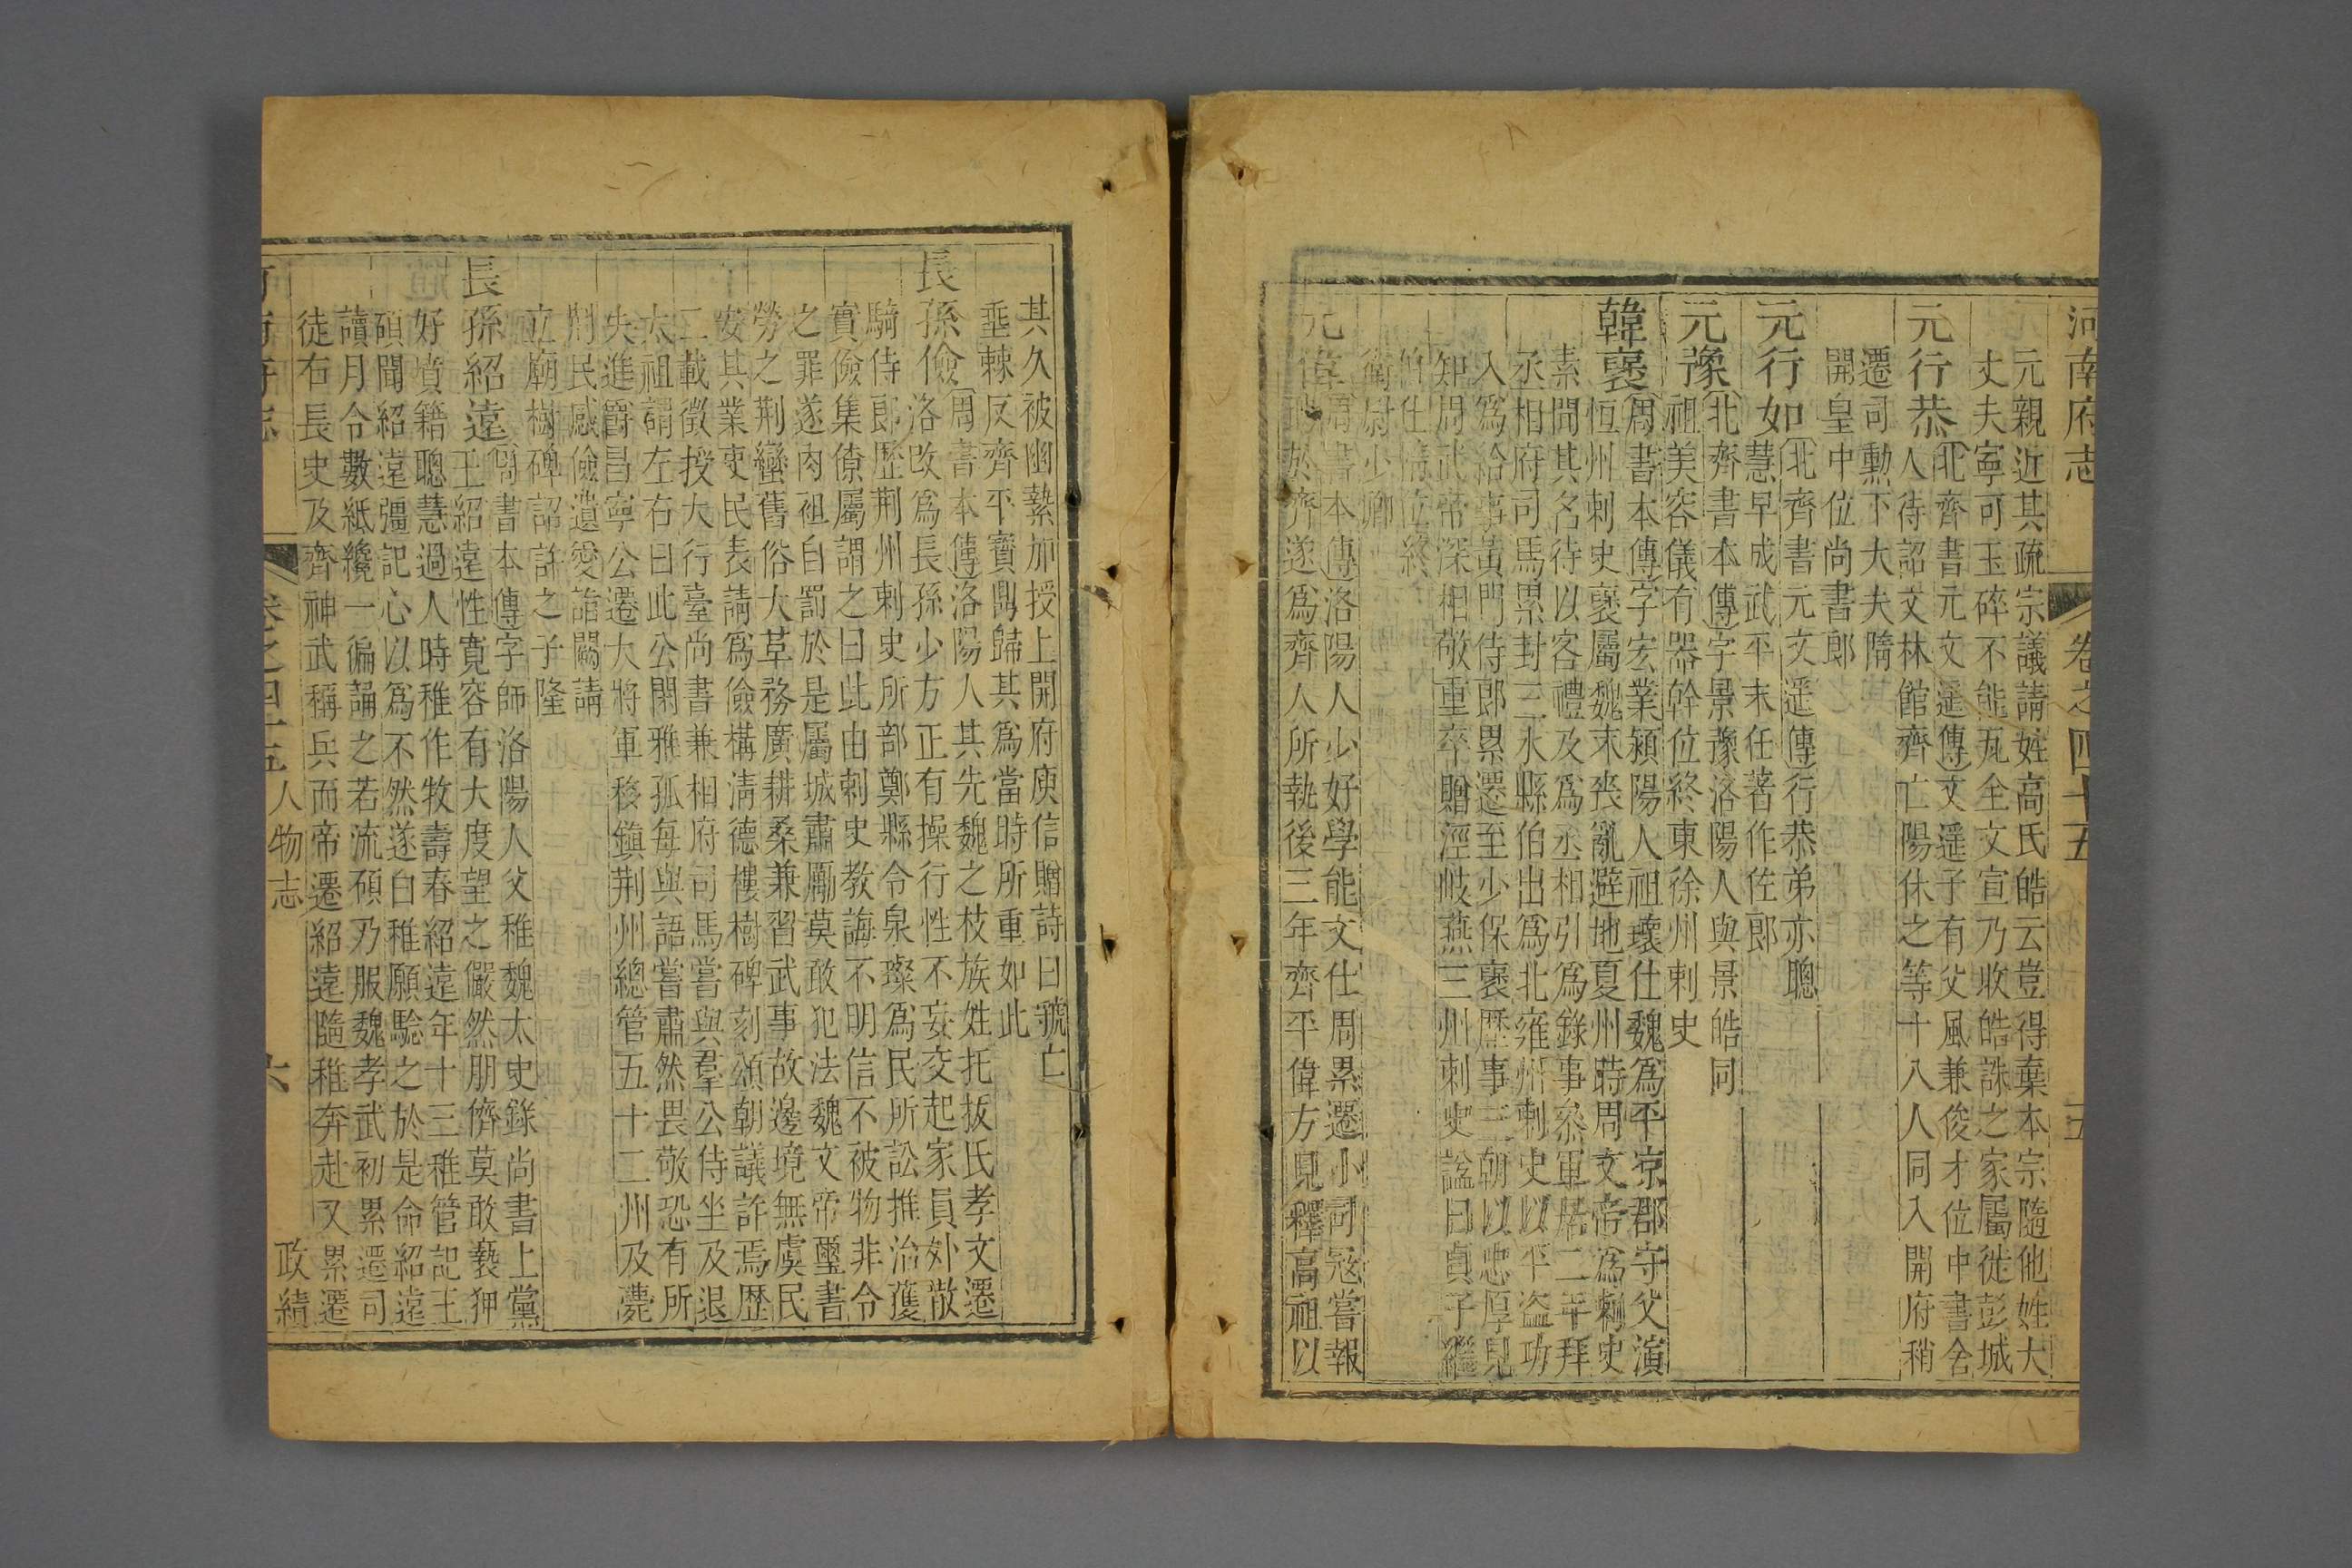 河南府志
卷之四十五
五
元親近其疏宗議請姓高氏皓云豈得棄本宗隨他姓大
丈夫寧可玉碎不能瓦全文宣乃收皓誅之家屬徙彭城
元行恭〔北齊書元文遥傳〕文遥子有父風兼俊才位中書舍
人待詔文林館齊亡陽休之等十八人同入開府稍
遷司勲下大夫隋
開皇中位尚書郎
元行如〔北齊書元文遥傳〕行恭弟亦聰
慧早成武平末任著作佐郎
元豫〔北齊書本傳〕字景豫洛陽人與景皓同
祖美容儀有器幹位終東徐州刺史
韓褒〔周書本傳〕字宏業潁陽人祖瓌仕魏為平凉郡守父演
恒州刺史褒屬魏末喪亂避地夏州時周文帝為刺史
素聞其名待以客禮及為丞相引為錄事叅軍居二年拜
丞相府司馬累封三水縣伯出為北雍州刺史以平盗功
入為給事黃門侍郎累遷至少保褒歷事三朝以忠厚見
知周武帝深相敬重卒贈涇岐燕三州刺史諡曰貞子繼
伯仕隋位終
衛尉少卿
元偉〔周書本傳〕洛陽人少好學能文仕周累遷小司寇嘗報
聘於齊遂為齊人所執後三年齊平偉方見釋高祖以
其久被幽縶加授上開府庾信贈詩曰虢亡
垂棘反齊平寶鼎歸其為當時所重如此
長孫儉〔周書本傳〕洛陽人其先魏之枝族姓托拔氏孝文遷
洛改為長孫少方正有操行性不妄交起家員外散
騎侍郎歷荆州刺史所部鄭縣令泉璨為民所訟推治獲
實儉集僚屬謂之曰此由刺史教誨不明信不被物非令
之罪遂肉袒自罰於是屬城肅勵莫敢犯法魏文帝璽書
勞之荆蠻舊俗大草務廣耕桑兼習武事故邊境無虞民
安其業吏民表請為儉構清德樓樹碑刻頌朝議許焉歷
二載徵授大行臺尚書兼相府司馬嘗與羣公侍坐及退
太祖謂左右曰此公閑雅孤每與語嘗肅然畏敬恐有所
失進爵昌寧公遷大將軍移鎮荆州總管五十二州及薨
荆民感儉遺愛詣闕請
立廟樹碑詔許之子隆
長孫紹遠〔周書本傳〕字師洛陽人父稚魏太史錄尚書上黨
王紹遠性寬容有大度望之儼然朋儕莫敢褻狎
好墳籍聰慧過人時稚作牧壽春紹遠年十三稚管記王
碩聞紹遠彊記心以為不然遂白稚願騐之於是命紹遠
讀月令數紙纔一徧誦之若流碩乃服魏孝武初累遷司
徒右長史及齊神武稱兵而帝遷紹遠隨稚奔赴又累遷
河南府志
卷之四十五 人物志
六
政績